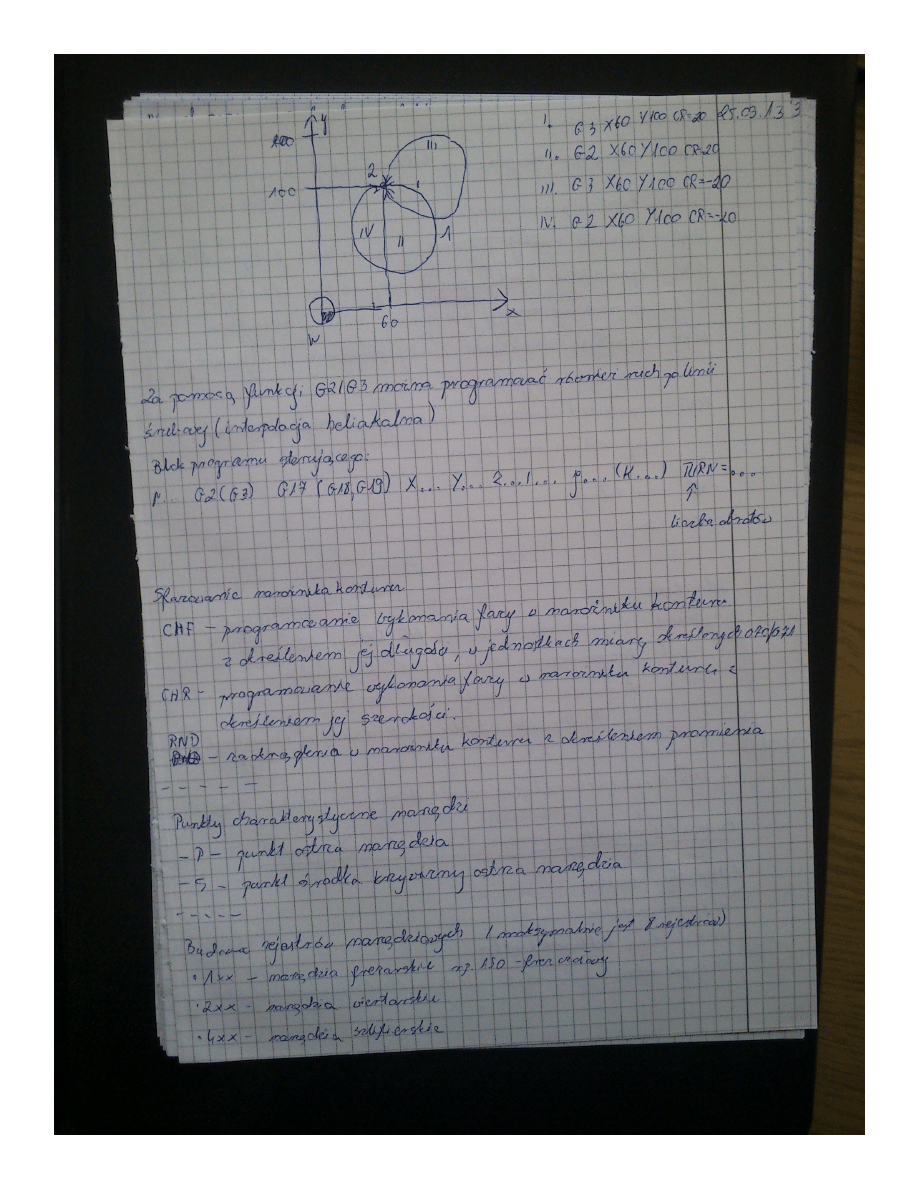 25.03.13
I. G3 X60 Y100 CR=20
II. G2 X60 Y100 CR=20
III. G3 X60 Y100 CR=-20
IV. G2 X60 Y100 CR=-20
y
2
III
100
I
IV
II
1
60
x
W
Za pomocą funkcji G2/G3 można programować również ruch po linii
śrubowej (interpolacja heliakalna)
Blok programu sterującego:
N... G2(G3) G17 (G18,G19) X... Y... Z...I... J...(K...) TURN=...
↑
liczba obrotów
Fazowanie narożnika konturu
CHF - programowanie wykonania fazy w narożniku konturu
z określeniem jej długości, w jednostkach miary określonych G70/G71
CHR - programowanie wykonania fazy w narożniku konturu z
określeniem jej szerokości.
RND
- zaokrąglenia w narożniku konturu z określeniem promienia
- - - - -
Punkty charakterystyczne narzędzi
- P - punkt ostrza narzędzia
- S - punkt środka krzywizny ostrza narzędzia
- - - - -
Budowa rejestrów narzędziowych (maksymalnie jest 8 rejestrów)
· 1xx - narzędzia frezarskie np. 150 - frez
· 2xx - narzędzia wiertarskie
· 4xx - narzędzia szlifierskie